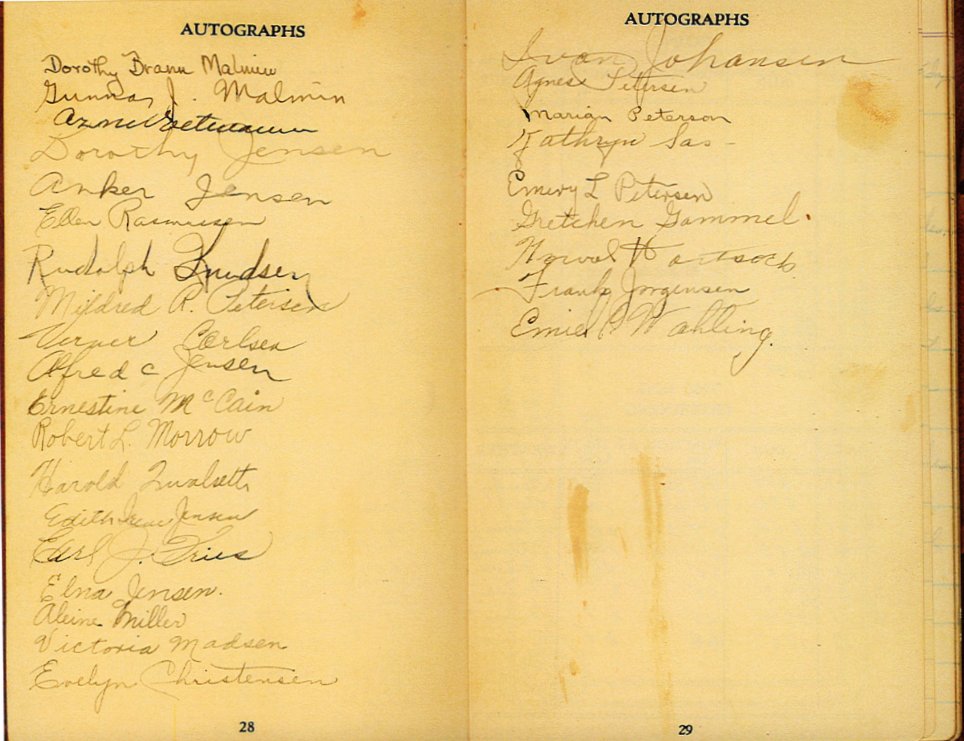 AUTOGRAPHS
Dorothy Brann Malmin
Gunnar J. Malmin
Dorothy Jensen
Anker Jensen
Ellen Rasmussen
Rudolph Knudsen
Mildred R. Petersen
Verner Carlsen
Alfred C Jensen
Ernestine McCain
Robert L. Morrow
Harold
Edith Irene Jensen
Earl J. Fries
Elna Jensen.
Aleine Miller
Victoria Madsen
Evelyn Christensen
28
AUTOGRAPHS
Ivan Johansen
Agnes Petersen
Marian Peterson
Kathryn Sas
Emery L Petersen
Gretchen Gammel.
Hartsock
Frank Jorgensen
Emiel Wahling.
29